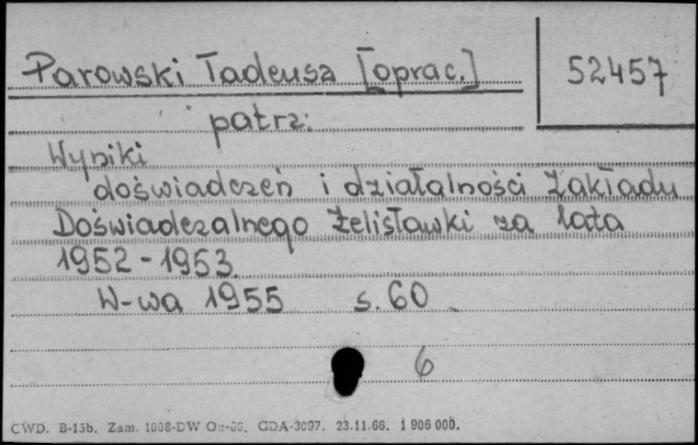 Parowski Tadeusz [oprac.]
52457
patrz:
Wyniki
doświadczeń i działalności Zakładu
Doświadczalnego Żelisławki za lata
1952-1953.
W-wa 1955 s. 60
6
CWD. B-15b. Zam. GDA-3097. 23.11.66. 1 906 000.